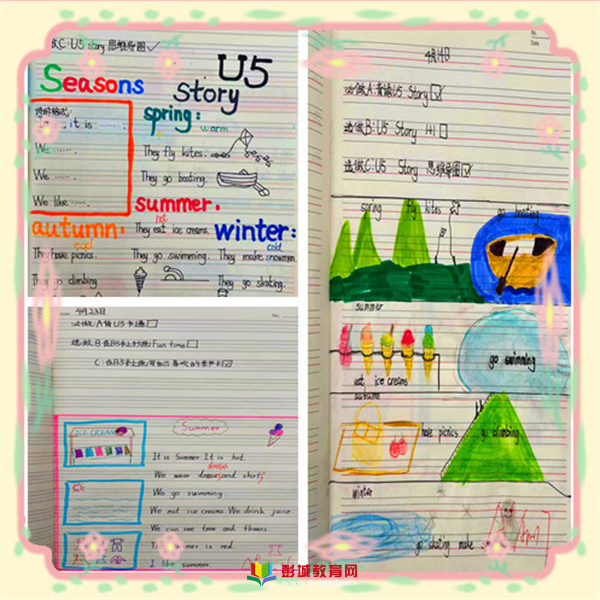 C:U5 story 思维导图
Seasons
U5
Story
诗的格式:
it is ......
We ......
We ......
We like ......
spring:
warm
They fly kites.
They go boating.
summer.
hot
They eat ice creams.
They go swimming.
autumn:
cool
They have picnics.
They go climbing
winter:
cold
They make snowmen.
They go skating.
4月23日
U5卡通
Fun time
Summer
ICE CREAM
It is Summer. It is hot.
We wear dress and shirt
dresses
We go swimming.
We eat ice creams. We drink juice.
We can see tree and flowers
summer is red.
I like summer.
4月14日
A:背诵U5 Story
B:U5 Story
选做C:U5 Story 思维导图
spring
fly kites
go boating
summer
eat ice creams
go swimming
autumn
have picnics
go climbing
winter
go skating make
彭城教育网